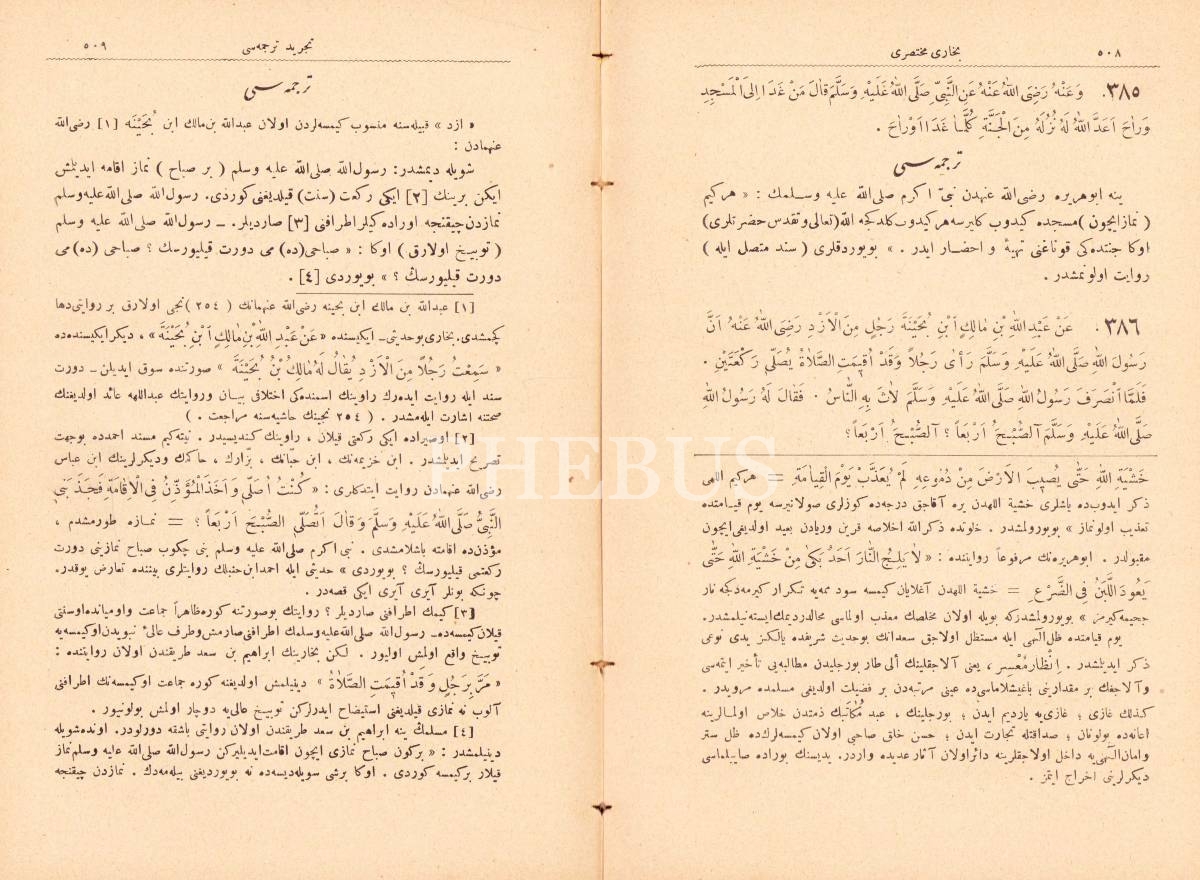 ٥٠٨
بخارى مختصرى
٣٨٥. وَعَنْهُ رَضِىَ اللهُ عَنْهُ عَنِ النَّبِىِّ صَلَّى اللهُ عَلَيْهِ وَسَلَّمَ قَالَ مَنْ غَدَا اِلَى الْمَسْجِدِ
وَرَاحَ اَعَدَّ اللهُ لَهُ نُزُلَهُ مِنَ الْجَنَّةِ كُلَّمَا غَدَا اَوْرَاحَ .
ترجمه‌سى
ينه ابوهريره رضى الله عنهدن نبىّ اكرم صلى الله عليه وسلمك : « هركيم
( نماز ايچون ) مسجده كيدوب كليرسه هركيدوب كلدكجه الله (تعالى وتقدس حضرتلرى)
اوكا جنتده‌كى قوناغنى تهيهٔ و احضار ايدر . » بويوردقلرى ( سند متصل ايله )
روايت اولونمشدر .
٣٨٦ . عَنْ عَبْدِ اللهِ بْنِ مَالِكٍ اِبْنِ بُحَيْنَةَ رَجُلٍ مِنَ الْاَزْدِ رَضِىَ اللهُ عَنْهُ اَنَّ
رَسُولَ اللهِ صَلَّى اللهُ عَلَيْهِ وَسَلَّمَ رَأى رَجُلاً وَقَدْ اُقِيمَتِ الصَّلَاةُ يُصَلِّى رَكْعَتَيْنِ .
فَلَمَّا اَنْصَرَفَ رَسُولُ اللهِ صَلَّى اللهُ عَلَيْهِ وَسَلَّمَ لَاثَ بِهِ النَّاسُ . فَقَالَ لَهُ رَسُولُ اللهِ
صَلَّى اللهُ عَلَيْهِ وَسَلَّمَ آلصُّبْحَ اَرْبَعاً ؟ آلصُّبْحَ اَرْبَعاً ؟
خَشْيَةِ اللهِ حَتَّى يُصِيبَ الْاَرْضَ مِنْ دُمُوعِهِ لَمْ يُعَذَّبْ يَوْمَ الْقِيَامَةِ = هركيم اللهى
ذكر ايدوب‌ده ياشلرى خشية اللهدن يره آقاجق درجه‌ده كوزلرى صولانيرسه يوم قيامتده
تعذيب اولونماز » بويورولمشدر . خلونده ذكرالله اخلاصه قرين وريادن بعيد اولديغى‌ايچون
مقبولدر . ابوهريره‌نك مرفوعاً روايتنده : « لَا يَلِجُ النَّارَ اَحَدٌ بَكَى مِنْ خَشْيَةِ اللهِ حَتَّى
يَعُودَ اللَّبَنُ فِى الضَّرْعِ = خشية اللهدن آغلايان كيمسه سود ممه‌يه تكرار كيرمه‌دكجه نار
جحيمه كيرمز » بويورولمشدركه بويله اولان مخلصك معذب اولماسى محالدرديمك‌ايسته‌نيلمشدر.
يوم قيامتده ظل آلهى ايله مستظل اولاجق سعدانك بوحديث شريفده يالكيز يدى نوعى
ذكر ايديلمشدر . اِنْظَارِ مُعْسِر ، يعنى آلاجقلينك الى طار بورجليدن مطالبه‌يى تأخير ايتمه‌سى
وآلاجغك بر مقدارينى باغيشلاماسى‌ده عينى مرتبه‌دن بر فضيلت اولديغى مسلمده مرويدر .
كذلك غازى ؛ غازى‌يه يارديم ايدن ؛ بورجلينك ، عبد مُكَاتَبك ذمتدن خلاص اولمالرينه
اعانه‌ده بولونان ؛ صداقتله تجارت ايدن ؛ حسن خلق صاحبى اولان كيمسه‌لرك‌ده ظل ستر
وامان‌آلهى‌يه داخل اولاجقلرينه دائراولان آثار عديده واردر. يديسنك بوراده صاييلماسى
ديكرلرينى اخراج ايتمز .
٥٠٩
تجريد ترجمه‌سى
ترجمه‌سى
« ازد » قبيله‌سنه منسوب كيمسه‌لردن اولان عبدالله بن‌مالك ابن بُحَيْنَه [١] رضى‌الله
عنهمادن :
شويله ديمشدر: رسول‌الله صلى‌الله عليه وسلم ( بر صباح ) نماز اقامه ايديلمش
ايكن برينك [٢] ايكى ركعت (سنت) قيلديغنى كوردى. رسول‌الله صلى‌الله عليه‌وسلم
نمازدن‌چيقنجه اوراده كيلر اطرافنى [٣] صارديلر. ــ رسول‌الله صلى‌الله عليه وسلم
( توبيخ اولارق ) اوكا : « صباحى(ده) مى دورت قيليورسك ؟ صباحى (ده) مى
دورت قيليورسك ؟ » بويوردى [٤] .
[١] عبدالله بن مالك ابن بحينه رضى‌الله عنهمانك ( ٢٥٤ ) نجى اولارق بر روايتى‌دها
كچمشدى. بخارى بوحديثى ــ ايكيسنده «عَنْ عَبْدِ اللهِ بْنِ مَالِكٍ اَبْنِ بُحَيْنَةَ» ، ديكر ايكيسنده‌ده
« سَمِعْتُ رَجُلاً مِنَ الْاَزْدِ يُقَالُ لَهُ مَالِكُ بْنُ بُحَيْنَةَ » صورتنده سوق ايديلن ــ دورت
سند ايله روايت ايده‌رك راوينك اسمنده‌كى اختلافى بيان وروايتك عبداللهه عائد اولديغنك
صحتنه اشارت ايله‌مشدر . ( ٢٥٤ نجينك حاشيه‌سنه مراجعت . )
[٢] اوصيراده ايكى ركعتى قيلان ، راوينك كنديسيدر . نيته‌كيم مسند احمدده بوجهت
تصريح ايديلمشدر . ابن خزيمه‌نك ، ابن حبّانك ، بزّارك ، حاكمك وديكرلرينك ابن عباس
رضى‌الله عنهمادن روايت ايتدكلرى : « كُنْتُ اُصَلِّى وَاَخَذَ الْمُؤَذِّنُ فِى الْاِقَامَةِ فَجَذَبَنِى
النَّبِىُّ صَلَّى اللهُ عَلَيْهِ وَسَلَّمَ وَقَالَ اَتُصَلِّى الصُّبْحَ اَرْبَعاً ؟ = نمازه طورمشدم ،
مؤذن‌ده اقامته باشلامشدى . نبى اكرم صلى‌الله عليه وسلم بنى چكوب صباح نمازينى دورت
ركعتمى قيليورسك ؟ بويوردى » حديثى ايله احمدابن‌حنبلك روايتلرى بيننده تعارض يوقدر.
چونكه بونلر آيرى آيرى ايكى قصه‌در .
[٣] كيمك اطرافنى صارديلر ؟ روايتك بوصورتنه كوره ظاهراً جماعت واوميانده‌اوسنتى
قيلان‌كيمسه‌ده. رسول الله صلى الله عليه‌وسلمك اطرافنى‌صارمش‌وطرف عالئ نبويدن‌اوكيمسه‌يه
توبيخ واقع اولمش اوليور . لكن بخارينك ابراهيم بن سعد طريقندن اولان روايتنده :
« مَرَّ بِرَجُلٍ وَقَدْ اُقِيمَتِ الصَّلَاةُ » دينيلمش اولديغنه كوره جماعت اوكيمسه‌نك اطرافنى
آلوب نه نمازى قيلديغنى استيضاح ايدرلركن توبيخ عالى‌يه دوچار اولمش بولونيور .
[٤] مسلمك ينه ابراهيم بن سعد طريقندن اولان روايتى باشقه دورلودر. اونده‌شويله
دينيلمشدر : « بركون صباح نمازى ايچون اقامت‌ايديليركن رسول‌الله صلى‌الله عليه وسلم‌نماز
قيلار بركيمسه كوردى . اوكا برشى سويله‌ديسه‌ده نه بويورديغنى بيله‌مه‌دك . نمازدن چيقنجه
PHEBUS